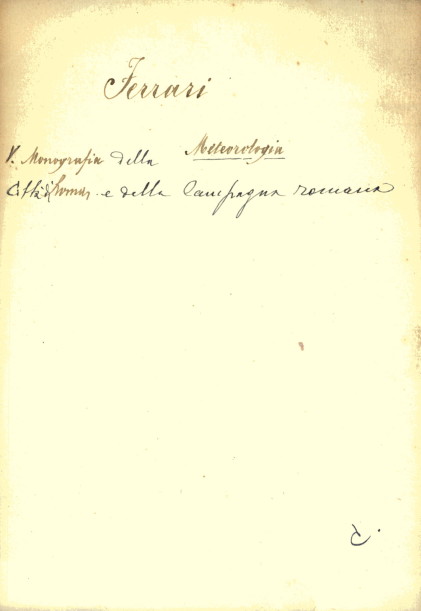 Ferrari
Meteorologia
V. Monografia della
Città di Roma e della Campagna romana
C.